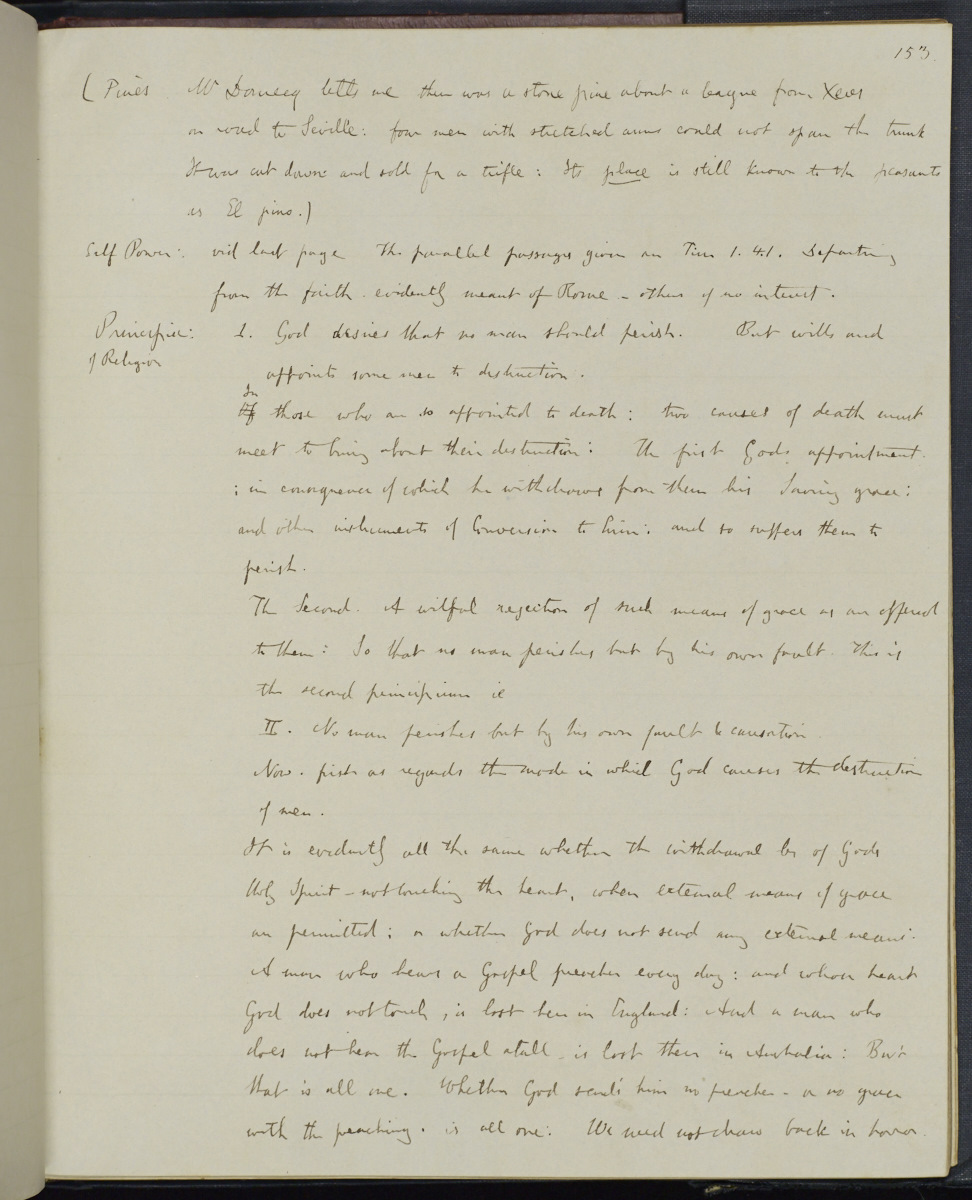 153
( Pines Mr Domecq tells me there was a stone pine about a league from Xeres
on road to Seville: four men with stretched arms could not span the trunk
It was cut down and sold for a trifle: Its place is still known to the peasants
as El pino.)
Self Power: vid last page The parallel passages given are Tim 1. 4.1. Departing
from the faith evidently meant of Rome - others of no interest.
Principia: 1. God desires that no man should perish. But wills and
of Religion
appoints some men to destruction.
In
those who are so appointed to death: two causes of death must
meet to bring about their destruction: The first Gods appointment
: in consequence of which he withdraws from them his Saving grace:
and other instruments of Conversion to him: and so suffers them to
perish.
The Second. A wilful rejection of such means of grace as are offered
to them: So that no man perishes but by his own fault. This is
the second principium ie
II. No man perishes but by his own fault & causation.
Now. first as regards the mode in which God causes the destruction
of men.
It is evidently all the same whether the withdrawal be of Gods
Holy Spirit - not touching the heart, when external means of grace
are permitted; or whether God does not send any external means.
A man who hears a Gospel preacher every day: and whose heart
God does not touch, is lost here in England: And a man who
does not hear the Gospel atall - is lost there in Australia: But
that is all one. Whether God sends him no preacher - or no grace
with the preaching. is all one: We need not draw back in horror.